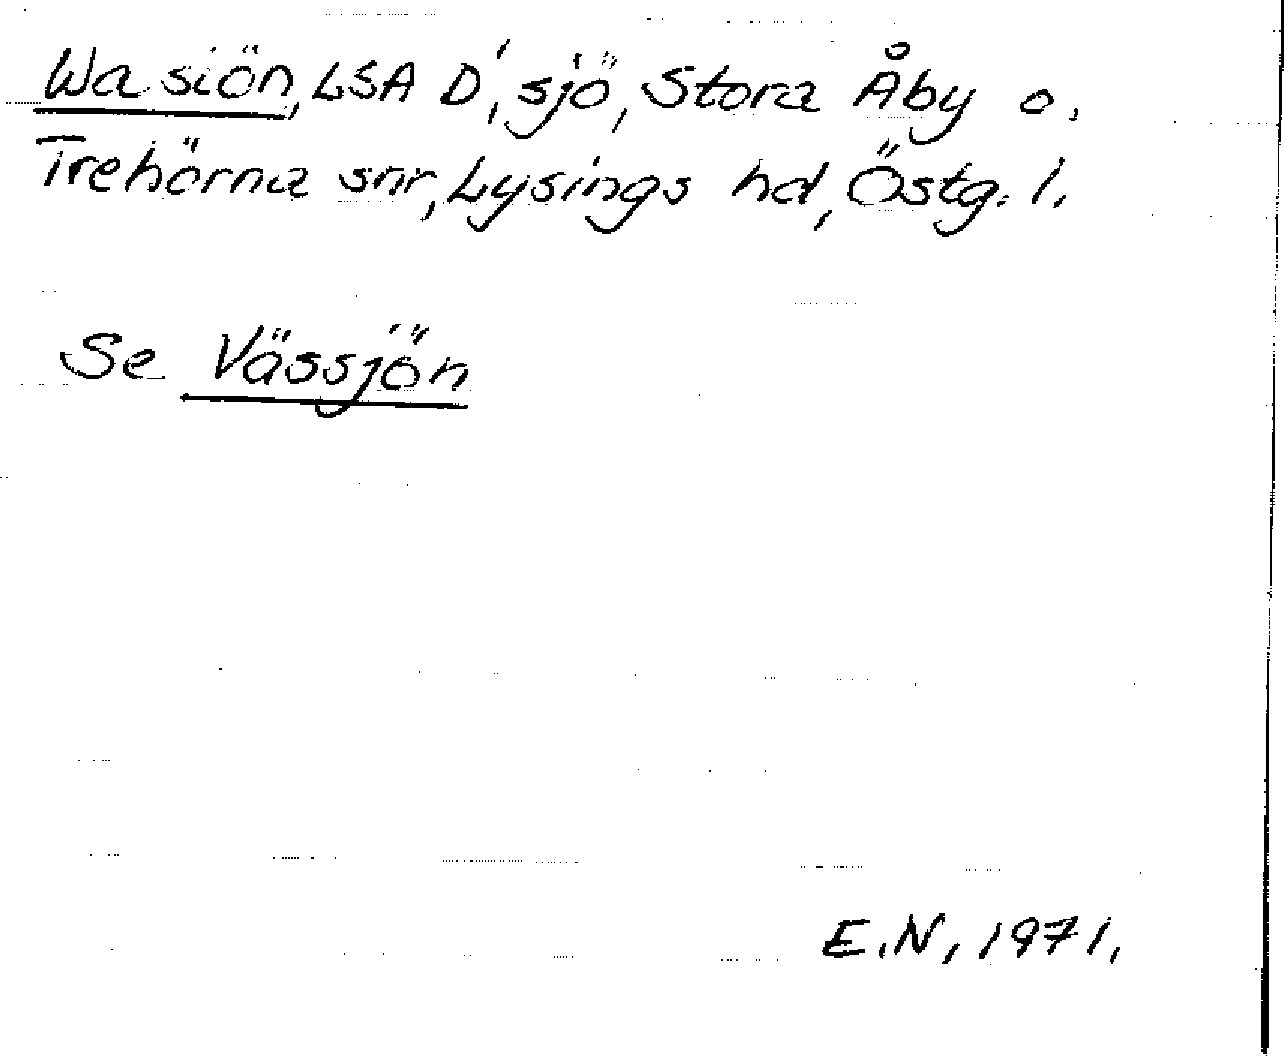 Wa siön, LSA D', sjö, Stora Åby o.
Trehörna snr, Lysings hd, Östg. l.
Se Vässjön
E.N, 1971.